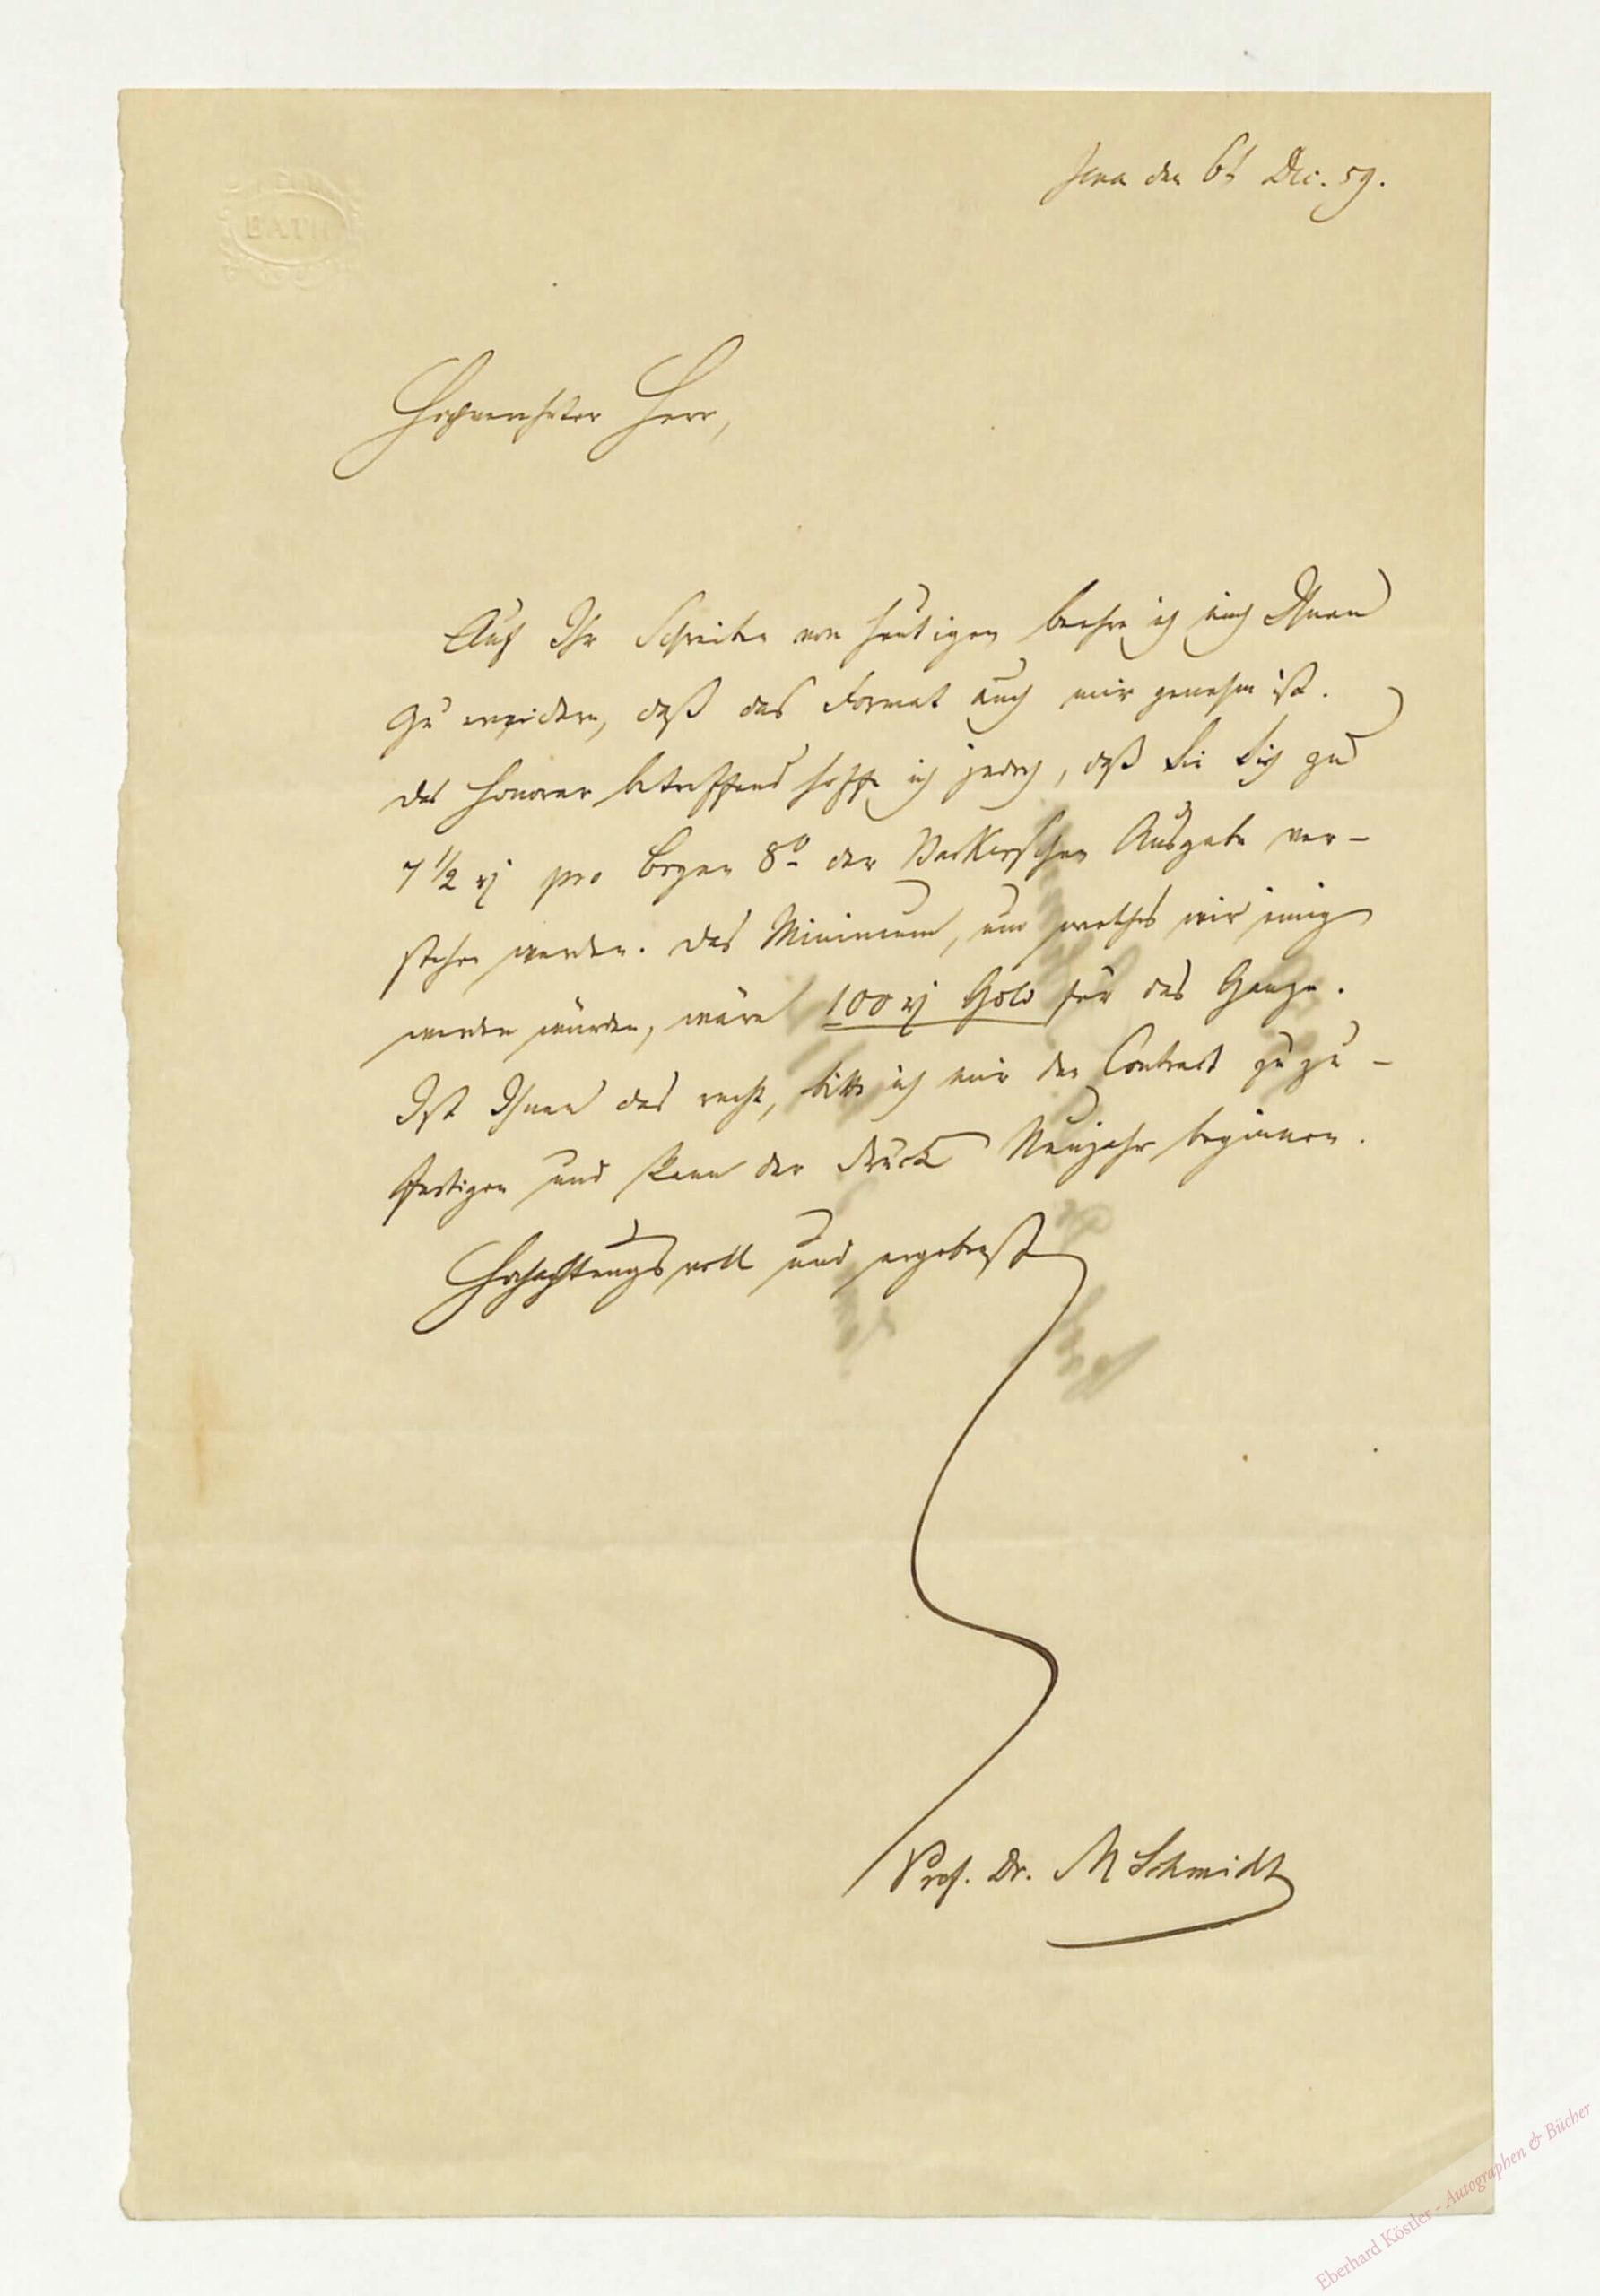 BATH
Jena den 6t Dec. 59.
Hochverehrter Herr,
Auf Ihr Schreiben vom heutigen beehre ich mich Ihnen
zu erwidern, daß das Format auch mir genehm ist.
Das Honorar betreffend hoffe ich jedoch, daß Sie Sich zu
7 1/2 rj pro Bogen 8o der Ausgabe ver-
stehen werden. Das Minimum, um welches wir einig
werden würden, wäre 100 rj Gold für das Ganze.
Ist Ihnen das recht, bitte ich mir den Contract zuzu-
fertigen und kann der Druck Neujahr beginnen.
Hochachtungsvoll und ergebenst
Prof. Dr. M Schmidt
Eberhard Köstler - Autographen & Bücher